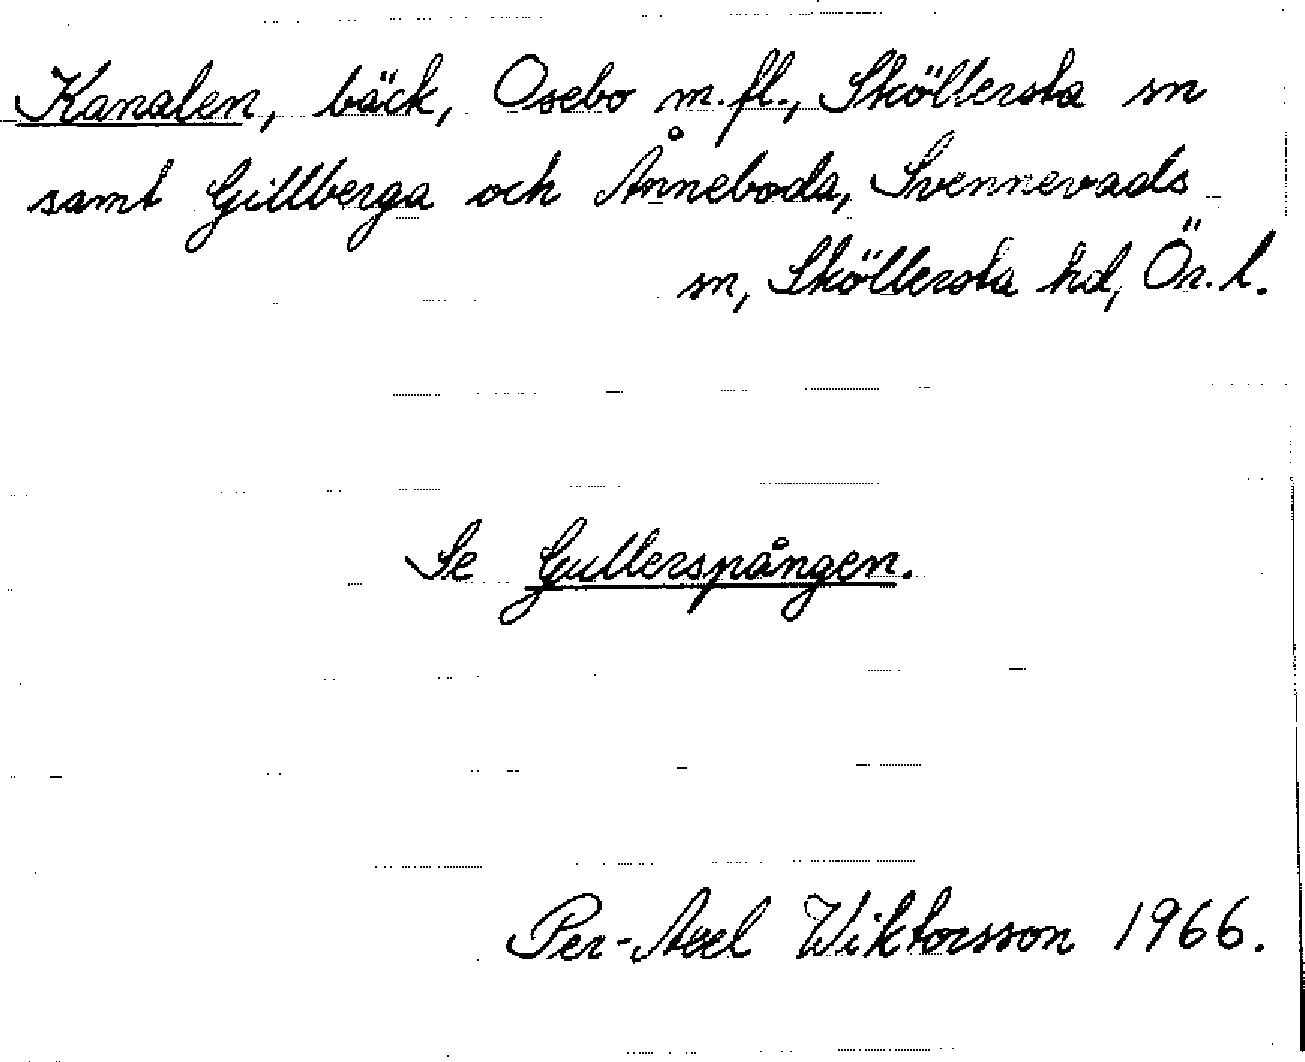 Kanalen, bäck, Osebo m.fl., Sköllersta sn
samt Gillberga och Ånneboda, Svennevads
sn, Sköllersta hd, Ör. l.
Se Gullerspången.
Per-Axel Wiktorsson 1966.